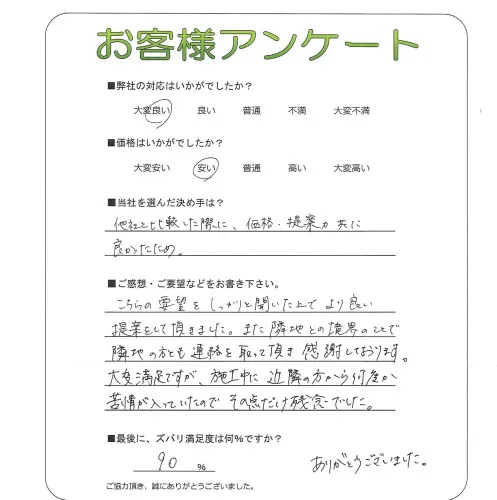 お客様アンケート
■弊社の対応はいかがでしたか？
大変良い 良い 普通 不満 大変不満
■価格はいかがでしたか？
大変安い 安い 普通 高い 大変高い
■当社を選んだ決め手は？
他社と比較した際に、価格・提案力 共に
良かったため。
■ご感想・ご要望などをお書き下さい。
こちらの要望をしっかりと聞いた上でより良い
提案をして頂きました。また隣地との境界のことで
隣地の方とも連絡を取って頂き感謝しております。
大変満足ですが、施工中に近隣の方から何度か
苦情が入っていたのでその点だけ残念でした。
■最後に、ズバリ満足度は何％ですか？
90 ％
ありがとうございました。
ご協力頂き、誠にありがとうございました。